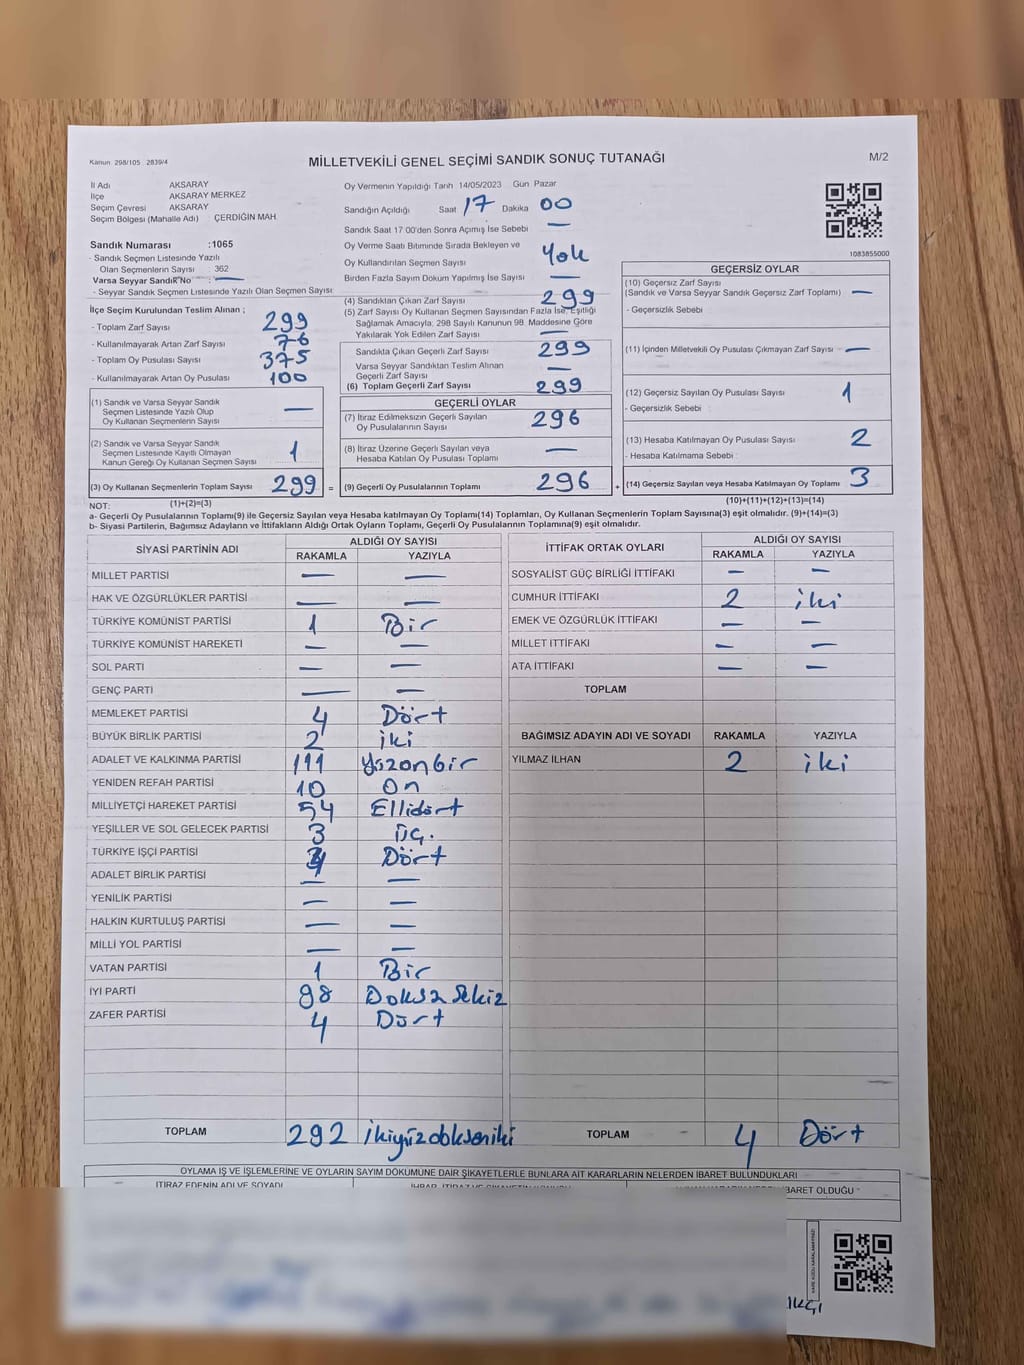 Kanun 298/105 2839/4
MİLLETVEKİLİ GENEL SEÇİMİ SANDIK SONUÇ TUTANAĞI
M/2
İl Adı AKSARAY
İlçe AKSARAY MERKEZ
Seçim Çevresi AKSARAY
Seçim Bölgesi (Mahalle Adı) : ÇERDİĞİN MAH.
Sandık Numarası :1065
- Sandık Seçmen Listesinde Yazılı
Olan Seçmenlerin Sayısı : 362
Varsa Seyyar Sandık No : —
- Seyyar Sandık Seçmen Listesinde Yazılı Olan Seçmen Sayısı
İlçe Seçim Kurulundan Teslim Alınan ;
- Toplam Zarf Sayısı 299
- Kullanılmayarak Artan Zarf Sayısı 76
- Toplam Oy Pusulası Sayısı 375
- Kullanılmayarak Artan Oy Pusulası 100
(1) Sandık ve Varsa Seyyar Sandık
Seçmen Listesinde Yazılı Olup
Oy Kullanan Seçmenlerin Sayısı —
(2) Sandık ve Varsa Seyyar Sandık
Seçmen Listesinde Kayıtlı Olmayan
Kanun Gereği Oy Kullanan Seçmen Sayısı 1
(3) Oy Kullanan Seçmenlerin Toplam Sayısı 299 =
Oy Vermenin Yapıldığı Tarih 14/05/2023 Gün Pazar
Sandığın Açıldığı Saat 17 Dakika 00
Sandık Saat 17 00'den Sonra Açımış İse Sebebi —
Oy Verme Saati Bitiminde Sırada Bekleyen ve
Oy Kullandırılan Seçmen Sayısı Yok
Birden Fazla Sayım Döküm Yapılmış İse Sayısı —
(4) Sandıktan Çıkan Zarf Sayısı 299
(5) Zarf Sayısı Oy Kullanan Seçmen Sayısından Fazla İse, Eşitliği
Sağlamak Amacıyla; 298 Sayılı Kanunun 98. Maddesine Göre
Yakılarak Yok Edilen Zarf Sayısı —
Sandıkta Çıkan Geçerli Zarf Sayısı 299
Varsa Seyyar Sandıktan Teslim Alınan
Geçerli Zarf Sayısı —
(6) Toplam Geçerli Zarf Sayısı 299
GEÇERLİ OYLAR
(7) İtiraz Edilmeksizin Geçerli Sayılan
Oy Pusulalarının Sayısı 296
(8) İtiraz Üzerine Geçerli Sayılan veya
Hesaba Katılan Oy Pusulası Toplamı —
(9) Geçerli Oy Pusulalarının Toplamı 296 +
1083855000
GEÇERSİZ OYLAR
(10) Geçersiz Zarf Sayısı
(Sandık ve Varsa Seyyar Sandık Geçersiz Zarf Toplamı) —
- Geçersizlik Sebebi
(11) İçinden Milletvekili Oy Pusulası Çıkmayan Zarf Sayısı —
(12) Geçersiz Sayılan Oy Pusulası Sayısı 1
- Geçersizlik Sebebi :
(13) Hesaba Katılmayan Oy Pusulası Sayısı 2
- Hesaba Katılmama Sebebi :
(14) Geçersiz Sayılan veya Hesaba Katılmayan Oy Toplamı 3
NOT: (1)+(2)=(3) (10)+(11)+(12)+(13)=(14)
a- Geçerli Oy Pusulalarının Toplamı(9) ile Geçersiz Sayılan veya Hesaba katılmayan Oy Toplamı(14) Toplamları, Oy Kullanan Seçmenlerin Toplam Sayısına(3) eşit olmalıdır. (9)+(14)=(3)
b- Siyasi Partilerin, Bağımsız Adayların ve İttifakların Aldığı Ortak Oyların Toplamı, Geçerli Oy Pusulalarının Toplamına(9) eşit olmalıdır.
SİYASİ PARTİNİN ADI ALDIĞI OY SAYISI
RAKAMLA YAZIYLA
MİLLET PARTİSİ — —
HAK VE ÖZGÜRLÜKLER PARTİSİ — —
TÜRKİYE KOMÜNİST PARTİSİ 1 Bir
TÜRKİYE KOMÜNİST HAREKETİ — —
SOL PARTİ — —
GENÇ PARTİ — —
MEMLEKET PARTİSİ 4 Dört
BÜYÜK BİRLİK PARTİSİ 2 iki
ADALET VE KALKINMA PARTİSİ 111 Yüzonbir
YENİDEN REFAH PARTİSİ 10 On
MİLLİYETÇİ HAREKET PARTİSİ 54 Ellidört
YEŞİLLER VE SOL GELECEK PARTİSİ 3 Üç.
TÜRKİYE İŞÇİ PARTİSİ 4 Dört
ADALET BİRLİK PARTİSİ — —
YENİLİK PARTİSİ — —
HALKIN KURTULUŞ PARTİSİ — —
MİLLİ YOL PARTİSİ — —
VATAN PARTİSİ 1 Bir
İYİ PARTİ 98 Doksa Sekiz
ZAFER PARTİSİ 4 Dört
TOPLAM 292 ikiyüzdokseniki
İTTİFAK ORTAK OYLARI ALDIĞI OY SAYISI
RAKAMLA YAZIYLA
SOSYALİST GÜÇ BİRLİĞİ İTTİFAKI — —
CUMHUR İTTİFAKI 2 iki
EMEK VE ÖZGÜRLÜK İTTİFAKI — —
MİLLET İTTİFAKI — —
ATA İTTİFAKI — —
TOPLAM
BAĞIMSIZ ADAYIN ADI VE SOYADI RAKAMLA YAZIYLA
YILMAZ İLHAN 2 iki
TOPLAM 4 Dört
OYLAMA İŞ VE İŞLEMLERİNE VE OYLARIN SAYIM DÖKÜMÜNE DAİR ŞİKAYETLERLE BUNLARA AİT KARARLARIN NELERDEN İBARET BULUNDUKLARI
İTİRAZ EDENİN ADI VE SOYADI
İBARET OLDUĞU